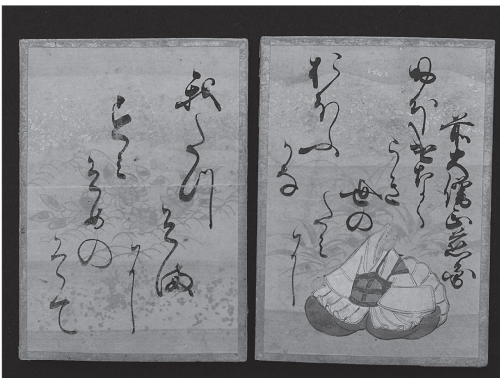 前大僧正慈円
おほけなく
うき
世の
たみに
おほふ
かな
我たつ
そまに
すみ
そめの
そて